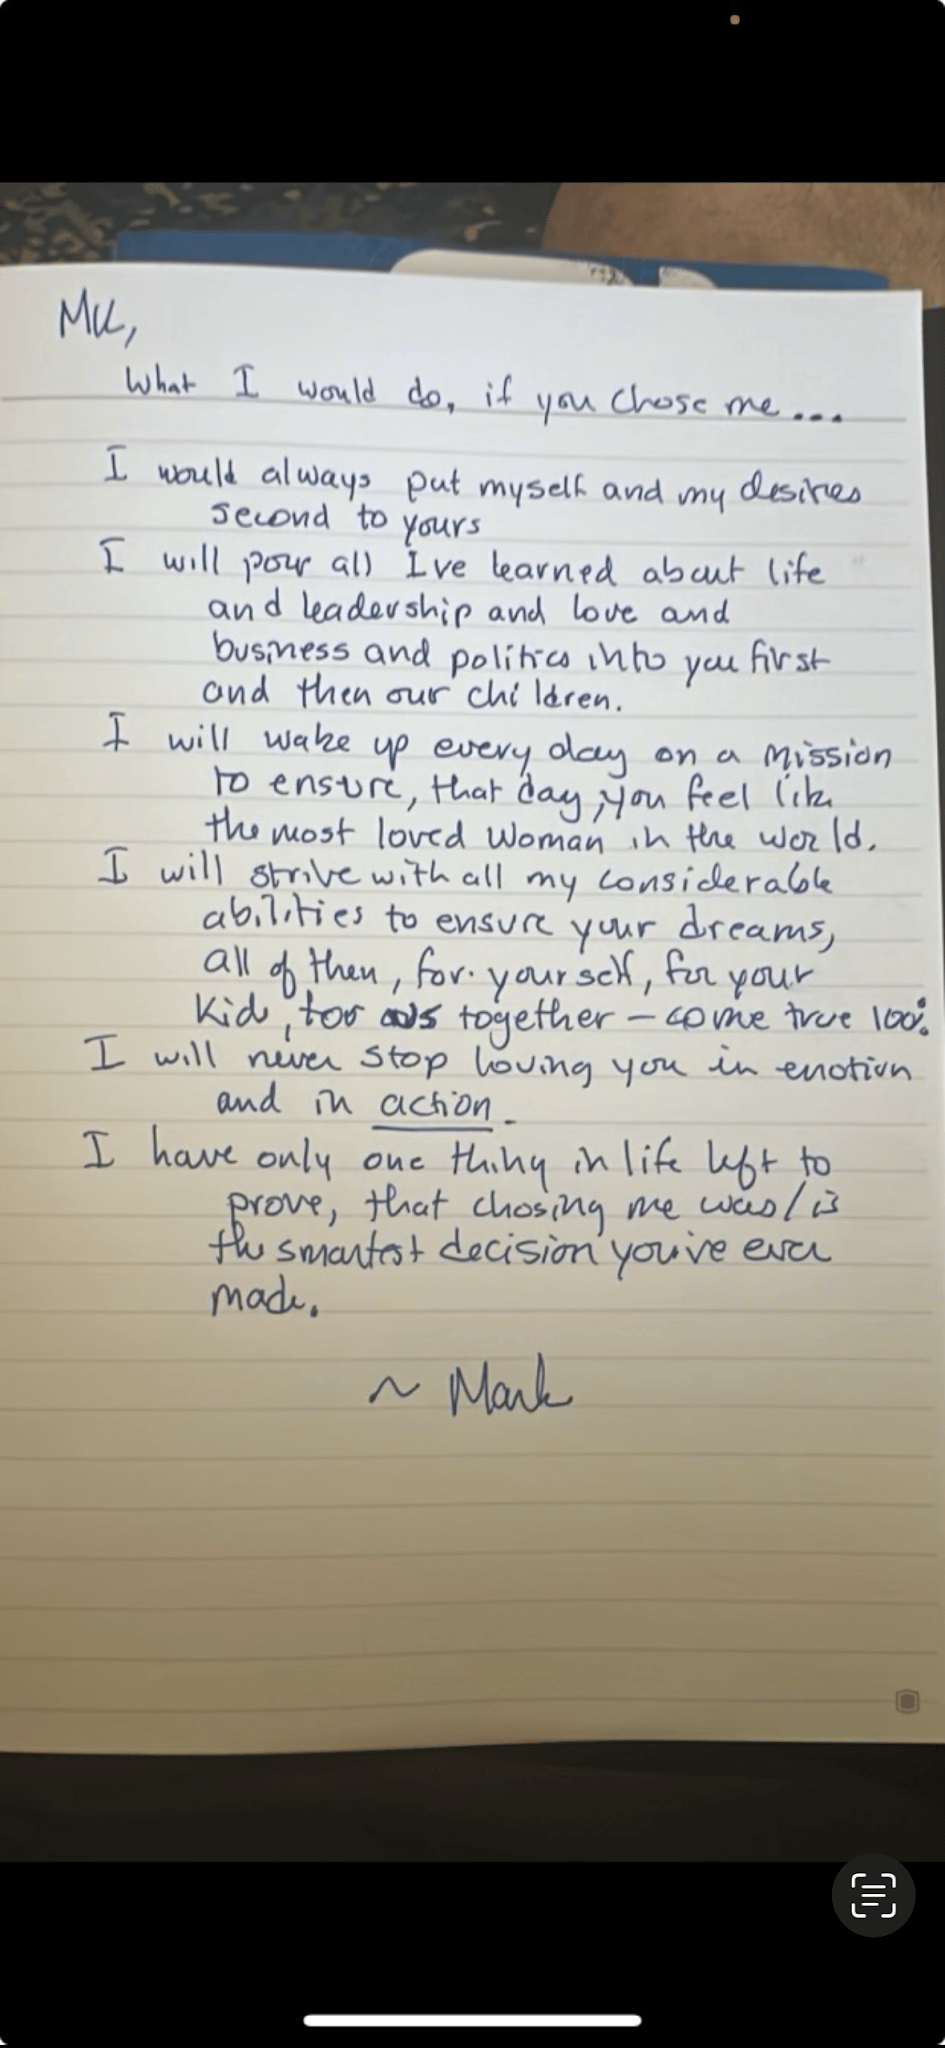 MK,
What I would do, if you chose me...
I would always put myself and my desires
second to yours
I will pour all I've learned about life
and leadership and love and
business and politics into you first
and then our children.
I will wake up every day on a mission
to ensure, that day, you feel like
the most loved woman in the world.
I will strive with all my considerable
abilities to ensure your dreams,
all of then, for yourself, for your
kids, for us together - come true 100%
I will never stop loving you in emotion
and in action.
I have only one thing in life left to
prove, that chosing me was/is
the smartest decision you've ever
made.
~ Mark